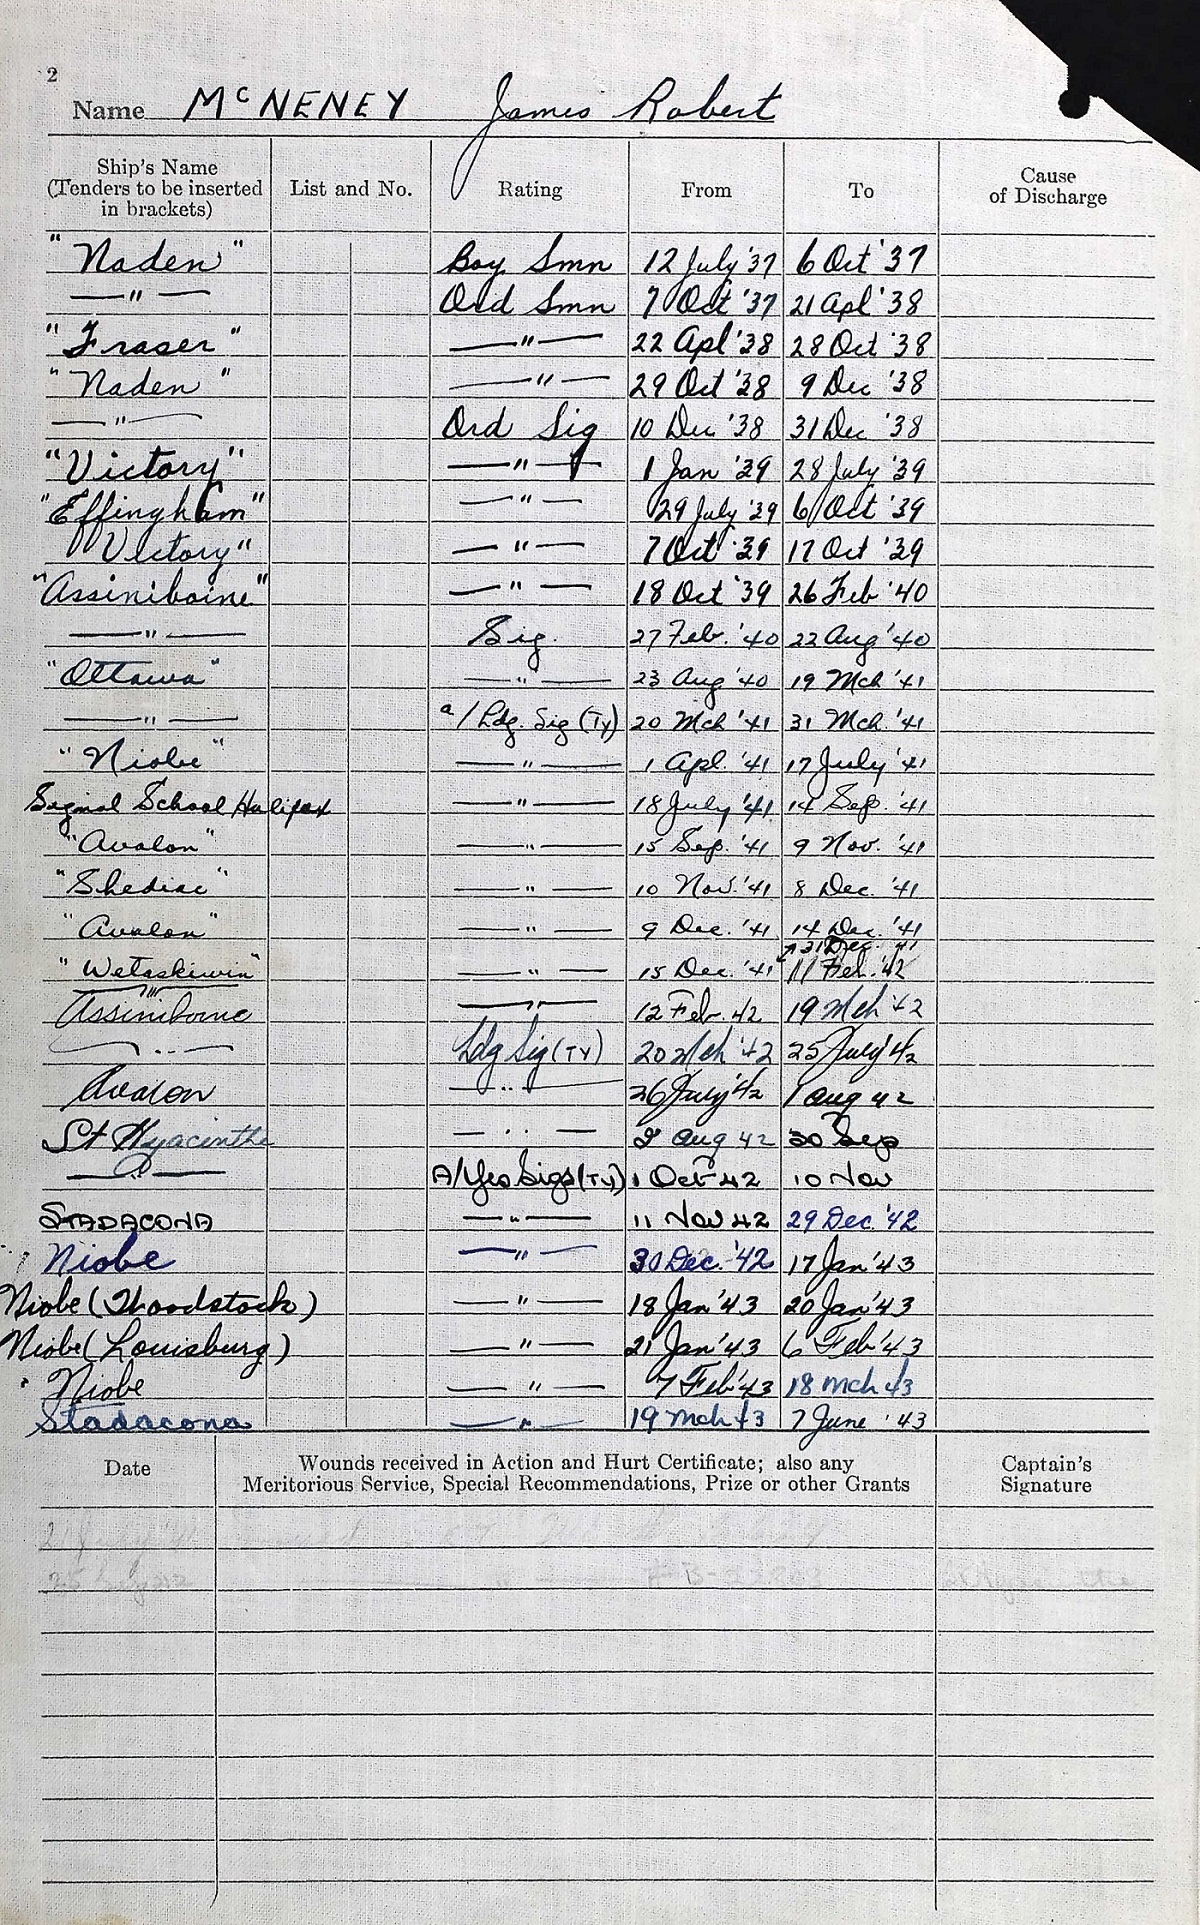 2
Name McNENEY James Robert
Ship's Name (Tenders to be inserted in brackets) List and No. Rating From To Cause of Discharge
"Naden" Boy Smn 12 July '37 6 Oct '37
—"— Ord Smn 7 Oct '37 21 Apl '38
"Fraser" —"— 22 Apl '38 28 Oct '38
"Naden" —"— 29 Oct '38 9 Dec '38
—"— Ord Sig 10 Dec '38 31 Dec '38
"Victory" —"— 1 Jan '39 28 July '39
"Effingham" —"— 29 July '39 6 Oct '39
"Victory" —"— 7 Oct '39 17 Oct '39
"Assiniboine" —"— 18 Oct '39 26 Feb '40
—"— Sig. 27 Feb. '40 22 Aug '40
"Ottawa" —"— 23 Aug '40 19 Mch '41
—"— a/Ldg. Sig (Ty) 20 Mch '41 31 Mch '41
"Niobe" —"— 1 Apl. '41 17 July '41
Signal School Halifax —"— 18 July '41 14 Sep. '41
"Avalon" —"— 15 Sep. '41 9 Nov. '41
"Shediac" —"— 10 Nov. '41 8 Dec. '41
"Avalon" —"— 9 Dec. '41 14 Dec. '41
31 Dec. '41
"Wetaskiwin" —"— 15 Dec. '41 11 Feb. '42
Assiniboine —"— 12 Feb. 42 19 Mch 42
—"— Ldg Sig (Ty) 20 Mch '42 25 July '42
Avalon —"— 26 July '42 1 Aug 42
St Hyacinthe —"— 2 Aug 42 30 Sep
—"— A/Yeo Sigs (Ty) 1 Oct 42 10 Nov
STADACONA —"— 11 Nov 42 29 Dec '42
Niobe —"— 30 Dec. '42 17 Jan '43
Niobe (Woodstock) —"— 18 Jan '43 20 Jan '43
Niobe (Louisburg) —"— 21 Jan '43 6 Feb '43
Niobe —"— 7 Feb '43 18 Mch 43
Stadacona —"— 19 Mch 43 7 June '43
Date Wounds received in Action and Hurt Certificate; also any Meritorious Service, Special Recommendations, Prize or other Grants Captain's Signature